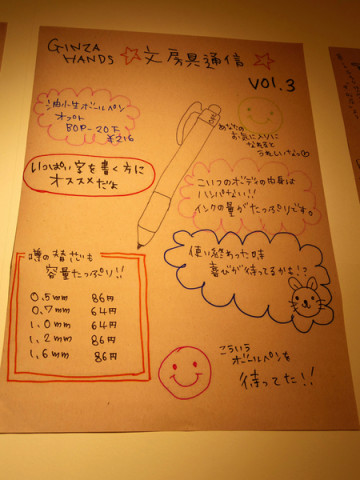 GINZA HANDS ☆文房具通信☆
VOl.3
油性ボールペン
オプト
BOP-20F
¥216
あなたの
お気に入りに
なれると
うれしいなっ
いっぱい字を書く方に
オススメだよ
こいつのボディの中身は
ハンパない!!
インクの量がたっぷりです。
噂の替芯も
容量たっぷり!!
0.5mm 86円
0.7mm 64円
1.0mm 64円
1.2mm 86円
1.6mm 86円
使い終わった時
喜びが待ってるかも!?
こういう
ボールペンを
待ってた!!